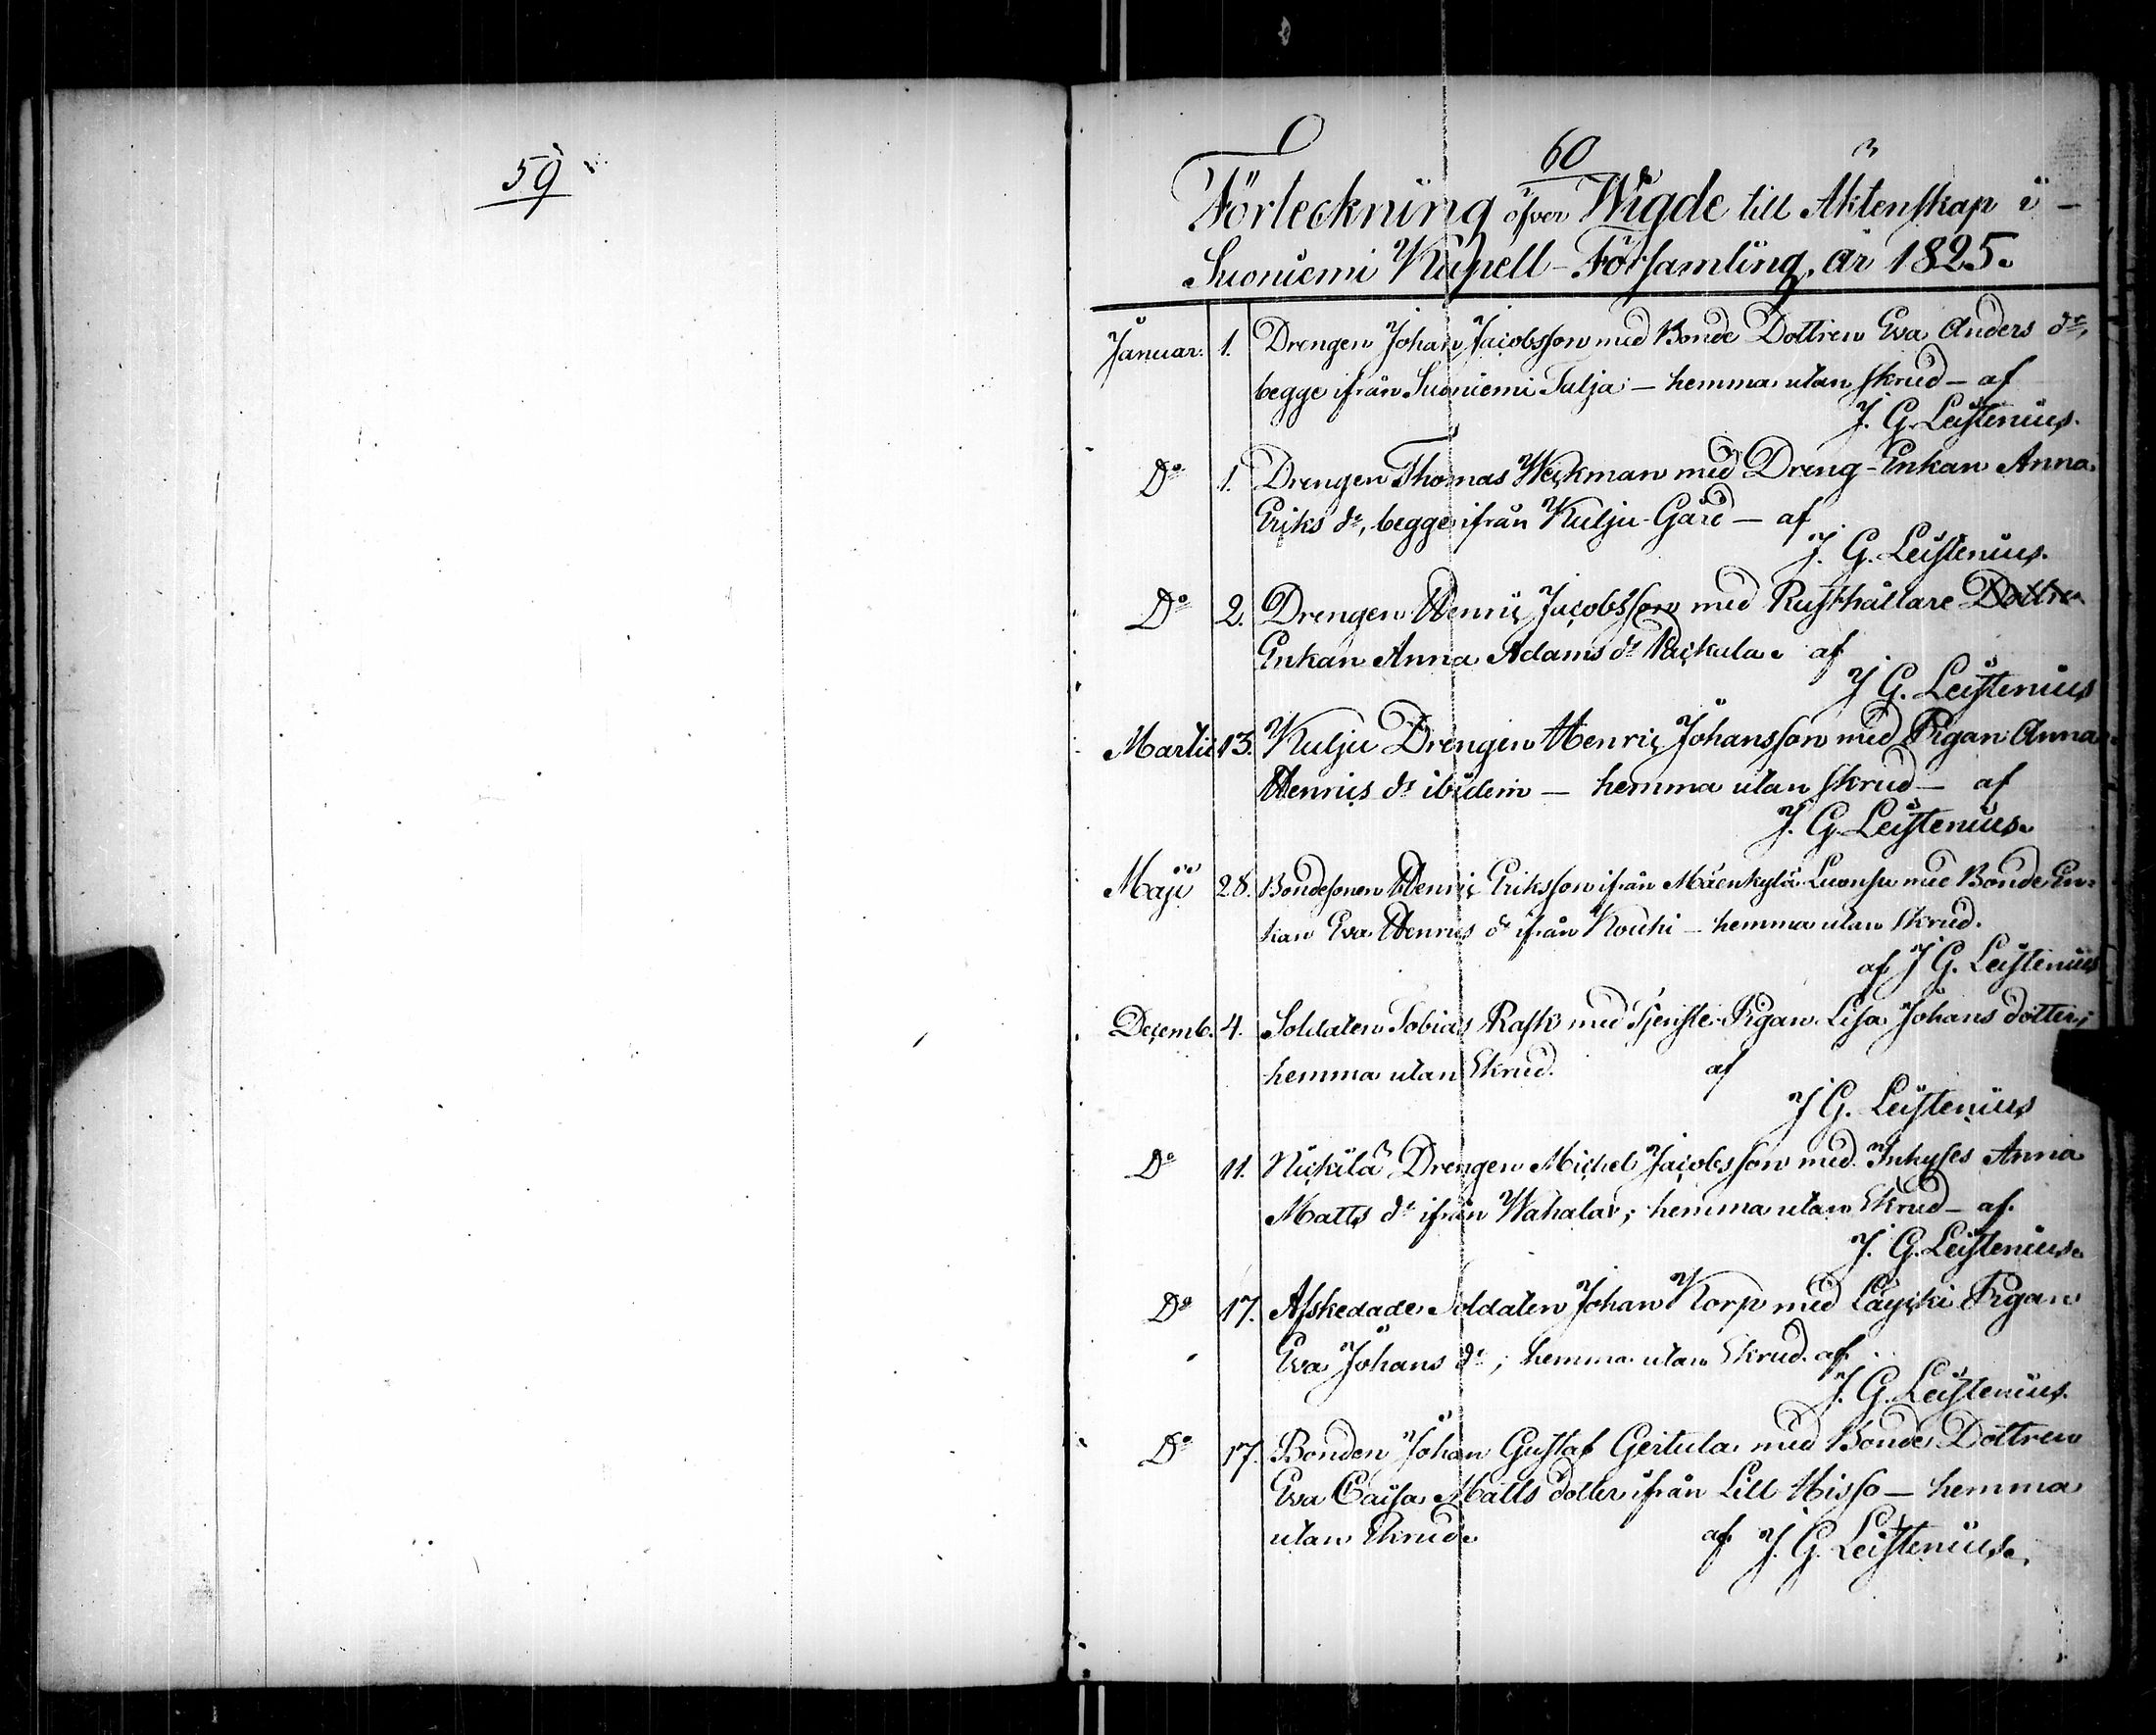 59
60
Förteckning öfver Wigde till Äktenskap i
Suoniemi Kapell-Församling, år 1825.
Januar. 1. Drengen Johan Jacobsson med Bonde Dottren Eva Anders dr,
begge ifrån Suoniemi Talja – hemma utan skrud – af
J. G. Leistenius.
Do 1. Drengen Thomas Weckman med Dreng-Enkan Anna
Eriks dr, begge ifrån Kulju-Gård – af
J. G. Leistenius.
Do 2. Drengen Henric Jacobsson med Rusthållare Dottren
Enkan Anna Adams dr Paickula. af
J G. Leistenius
Martii 13. Kulju Drengen Henric Johansson med Pigan Anna
Henrics dr ibidem – hemma utan skrud – af
J. G. Leistenius.
Maji 28. Bondesonen Henric Eriksson ifrån Mäenkylä med Bonde En-
kan Eva Henrics dr ifrån Kouhi – hemma utan skrud.
af J G. Leistenius
Decemb. 4. Soldaten Tobias Rask med Tjenste Pigan Lisa Johans dotter;
hemma utan Skrud. af
J G. Leistenius
Do 11. Nickilä Drengen Michel Jacobsson med Inhyses Anna
Matts dr ifrån Wahalax; hemma utan Skrud – af
J. G. Leistenius.
Do 17. Afskedade Soldaten Johan Korp med Pigan
Eva Johans dr; hemma utan Skrud. af
J. G. Leistenius.
Do 17. Bonden Johan Gustaf Geitula med Bonde Dottren
Eva Caisa Matts dotter ifrån Lill Hisso – hemma
utan Skrud. af J. G. Leistenius.